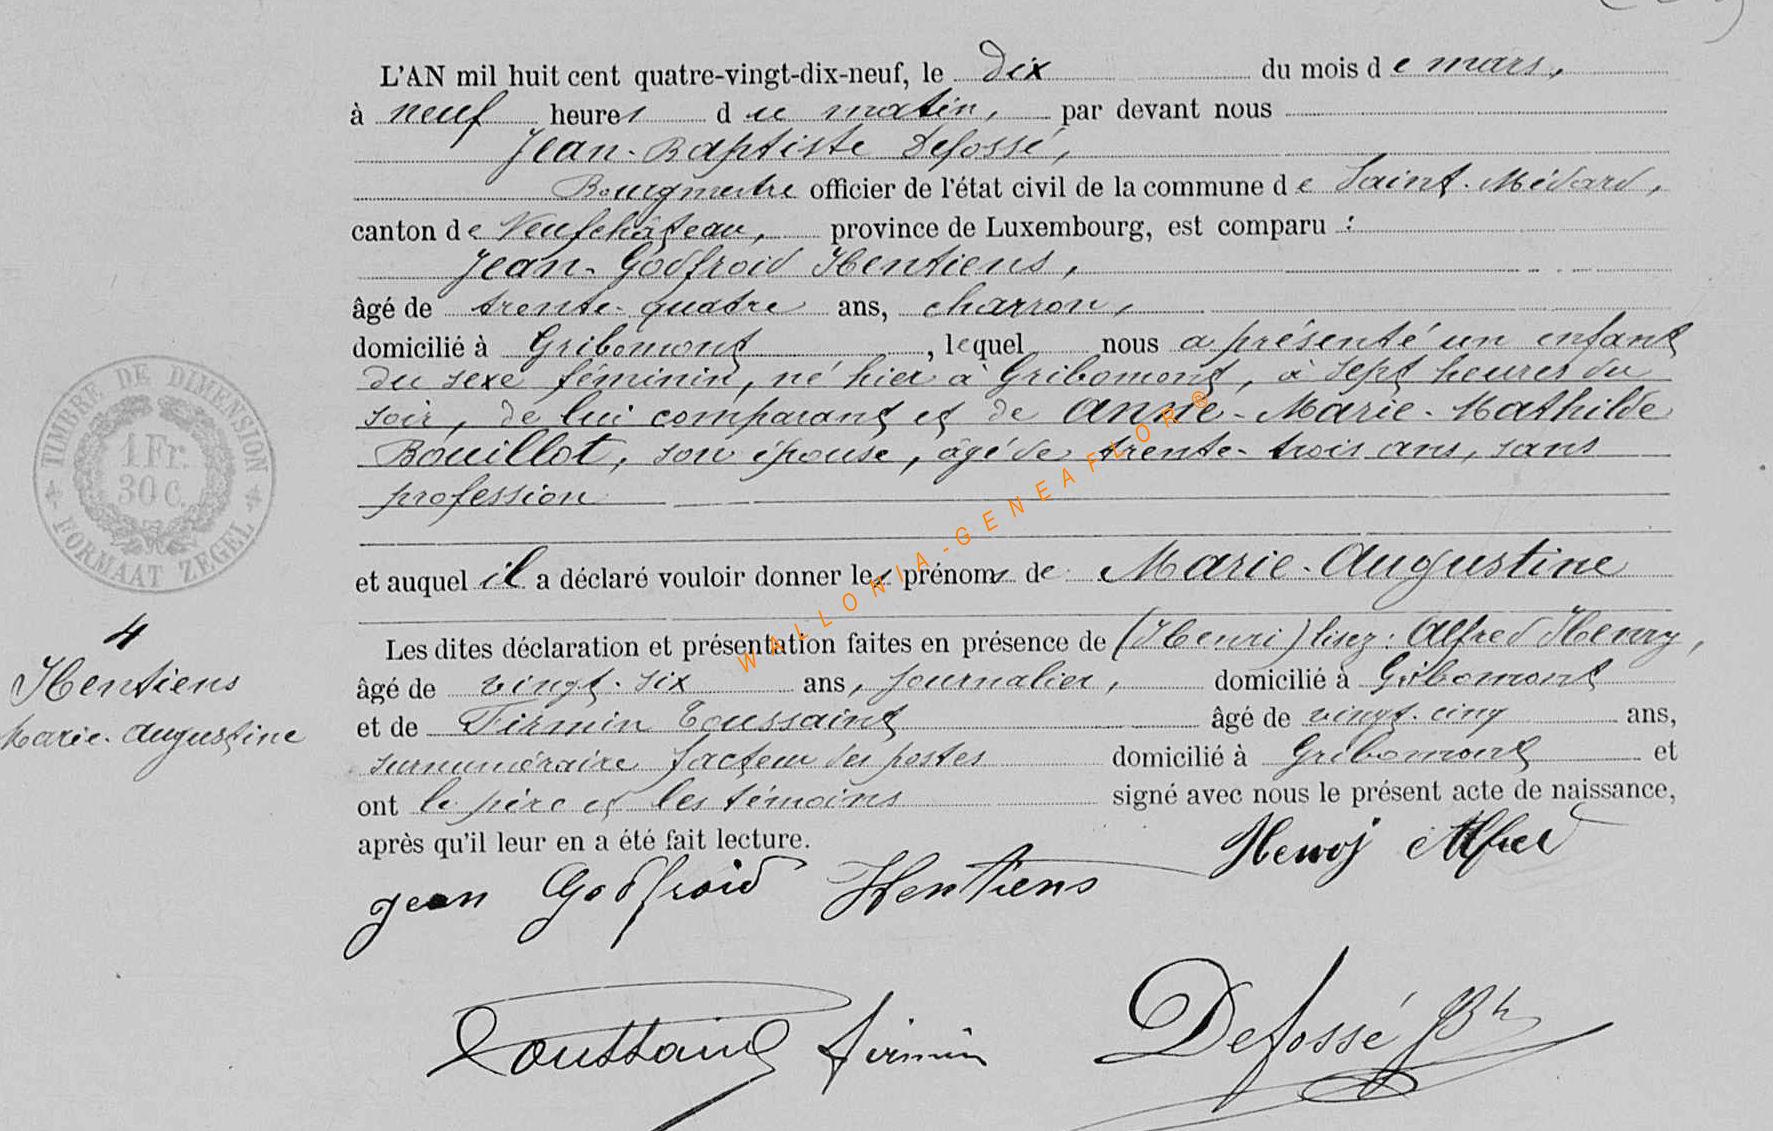 L'AN mil huit cent quatre-vingt-dix-neuf, le dix du mois de mars,
à neuf heures du matin, par devant nous
Jean-Baptiste Defossé,
Bourgmestre officier de l'état civil de la commune de Saint-Médard,
canton de Neufchâteau, province de Luxembourg, est comparu :
Jean-Godfroid Hentiens,
âgé de trente-quatre ans, charron,
domicilié à Gribomont, lequel nous a présenté un enfant
du sexe féminin, né hier à Gribomont, à sept heures du
soir, de lui comparant et de Anne-Marie-Mathilde
Bouillot, son épouse, âgé de trente-trois ans, sans
profession
et auquel il a déclaré vouloir donner les prénoms de Marie-Augustine
Les dites déclaration et présentation faites en présence de (Henri) lisez : Alfred Henry,
âgé de vingt-six ans, journalier, domicilié à Gribomont
et de Firmin Toussaint âgé de vingt-cinq ans,
surnuméraire facteur des postes domicilié à Gribomont et
ont le père et les témoins signé avec nous le présent acte de naissance,
après qu'il leur en a été fait lecture.
Jean Godfroid Hentiens Henry Alfred
Toussaint Firmin Defossé JBte
TIMBRE DE DIMENSION
1 Fr.
30 C.
FORMAAT ZEGEL
4
Hentiens
Marie-Augustine
WALLONIA-GENEAFLOR®